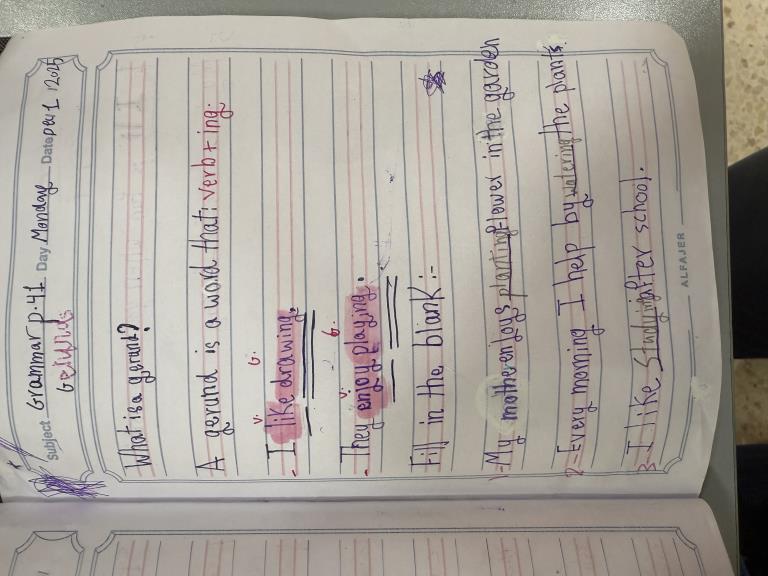 Subject Grammar p.41 Day Monday Date
Gerunds
What is a gerund?
A gerund is a word that: verb + ing.
V. G.
- I like drawing.
V. G.
- They enjoy playing.
Fill in the blank :-
1- My mother enjoys planting flower in the garden
2- Every morning I help by watering the plants.
3- I like studying after school.
ALFAJER